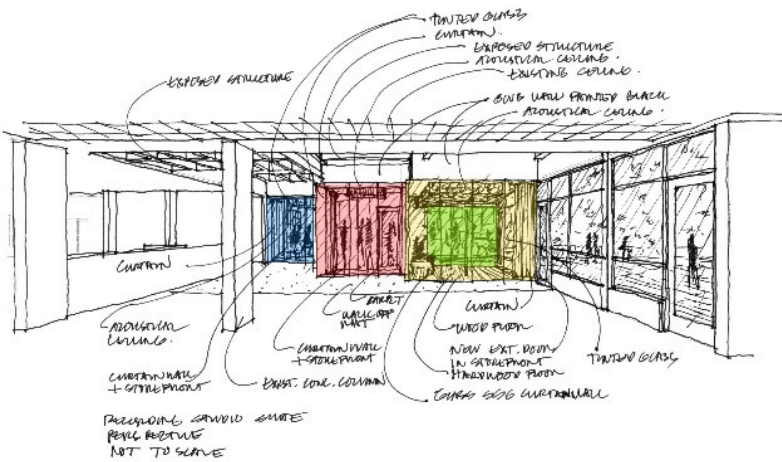 TINTED GLASS
CURTAIN.
EXPOSED STRUCTURE
ACOUSTICAL CEILING.
EXISTING CEILING.
EXPOSED STRUCTURE
GWB WALL PAINTED BLACK
ACOUSTICAL CEILING.
CURTAIN
ACOUSTICAL
CEILING.
CURTAIN WALL
+ STOREFRONT
EXIST. CONC. COLUMN
CURTAIN WALL
+ STOREFRONT
CARPET
WALK OFF
MAT
CURTAIN
WOOD FLOOR
NEW EXT. DOOR
IN STOREFRONT
HARDWOOD FLOOR
GLASS SSG CURTAINWALL
TINTED GLASS
RECORDING STUDIO SUITE
PERSPECTIVE
NOT TO SCALE